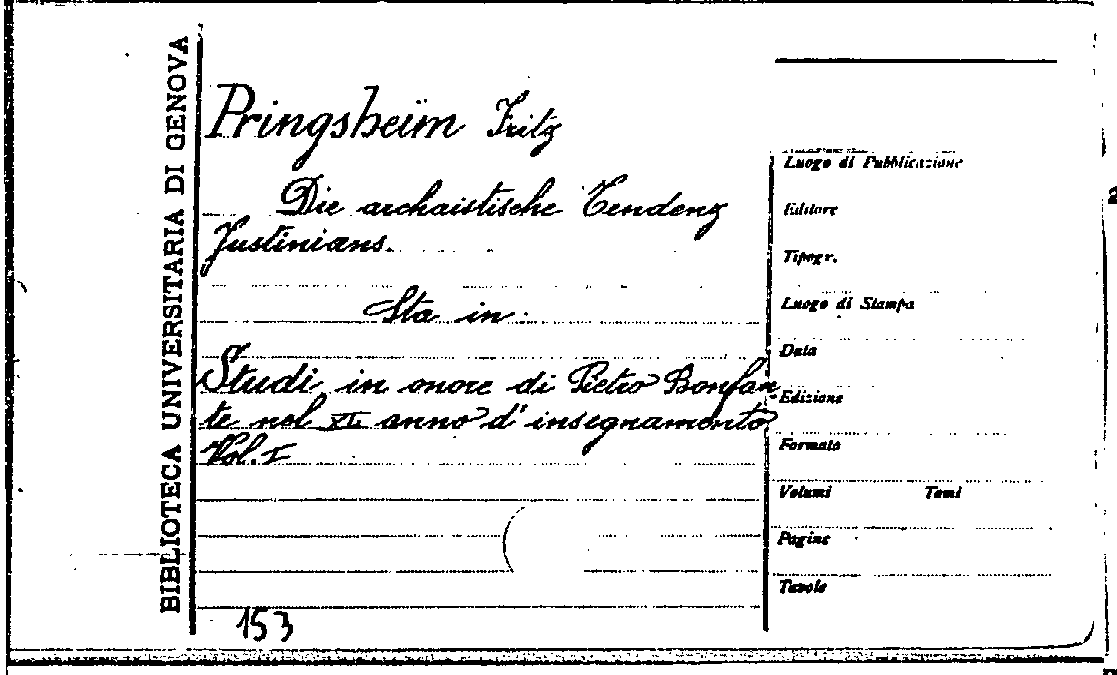 BIBLIOTECA UNIVERSITARIA DI GENOVA
Pringsheim Fritz
Die archaistische Tendenz
Justinians.
Sta in:
Studi in onore di Pietro Bonfan-
te nel XL anno d'insegnamento
Vol. I
153
Luogo di Pubblicazione
Editore
Tipogr.
Luogo di Stampa
Data
Edizione
Formato
Volumi Tomi
Pagine
Tavole